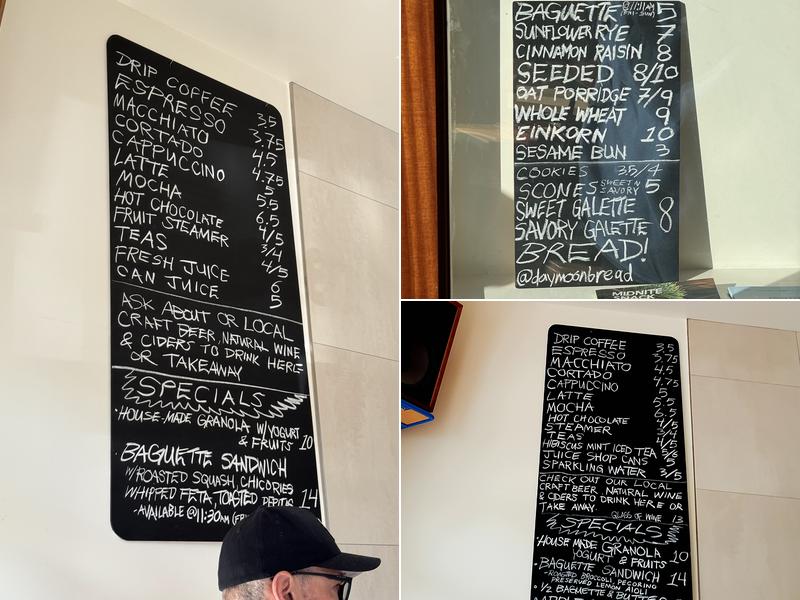 DRIP COFFEE 3.5
ESPRESSO 3.75
MACCHIATO 4.5
CORTADO 4.75
CAPPUCCINO 5
LATTE 5.5
MOCHA 6.5
HOT CHOCOLATE 4/5
FRUIT STEAMER 3/4
TEAS 4/5
FRESH JUICE 6
CAN JUICE 5
ASK ABOUT OR LOCAL
CRAFT BEER, NATURAL WINE
& CIDERS TO DRINK HERE
OR TAKEAWAY
SPECIALS
·HOUSE-MADE GRANOLA W/YOGURT
& FRUITS 10
·BAGUETTE SANDWICH
W/ROASTED SQUASH, CHICORIES
WHIPPED FETA, TOASTED PEPITAS 14
-AVAILABLE @11:30AM
BAGUETTE @11:11AM (FRI-SUN) 5
SUNFLOWER RYE 7
CINNAMON RAISIN 8
SEEDED 8/10
OAT PORRIDGE 7/9
WHOLE WHEAT 9
EINKORN 10
SESAME BUN 3
COOKIES 3.5/4
SCONES SWEET N SAVORY 5
SWEET GALETTE 8
SAVORY GALETTE
BREAD!
@daymoonbread
MIDNITE
SNACK
DRIP COFFEE 3.5
ESPRESSO 3.75
MACCHIATO 4.5
CORTADO 4.75
CAPPUCCINO 5
LATTE 5.5
MOCHA 6.5
HOT CHOCOLATE 4/5
STEAMER 3/4
TEAS 4/5
HIBISCUS MINT ICED TEA 5/6
JUICE SHOP CANS 5
SPARKLING WATER 3/5
CHECK OUT OUR LOCAL
CRAFT BEER, NATURAL WINE
& CIDERS TO DRINK HERE OR
TAKE AWAY.
GLASS OF WINE 13
SPECIALS
·HOUSE MADE GRANOLA
YOGURT & FRUITS 10
·BAGUETTE SANDWICH 14
-ROASTED BROCCOLI, PECORINO
PRESERVED LEMON AIOLI
·1/2 BAGUETTE & BUTTER